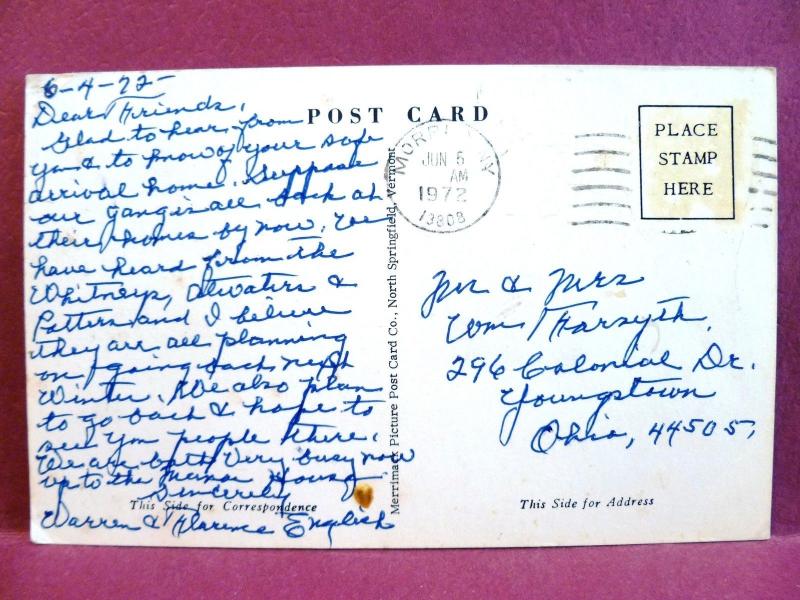 6-4-72-
Dear Friends,
Glad to hear from
you & to know of your safe
arrival home. Suppose
our gang is all back at
their homes by now. We
have heard from the
Whitneys, Atwaters &
Potters and I believe
they are all planning
on going back next
Winter. We also plan
to go back & hope to
see you people there.
We are both very busy now
up to the Manor House
Sincerely
Warren & Florence English
POST CARD
This Side for Correspondence
Merrimack Picture Post Card Co., North Springfield, Vermont
JUN 5
AM
1972
13808
PLACE
STAMP
HERE
Mr & Mrs
Wm Forsyth,
296 Colonial Dr.
Youngstown
Ohio, 44505,
This Side for Address